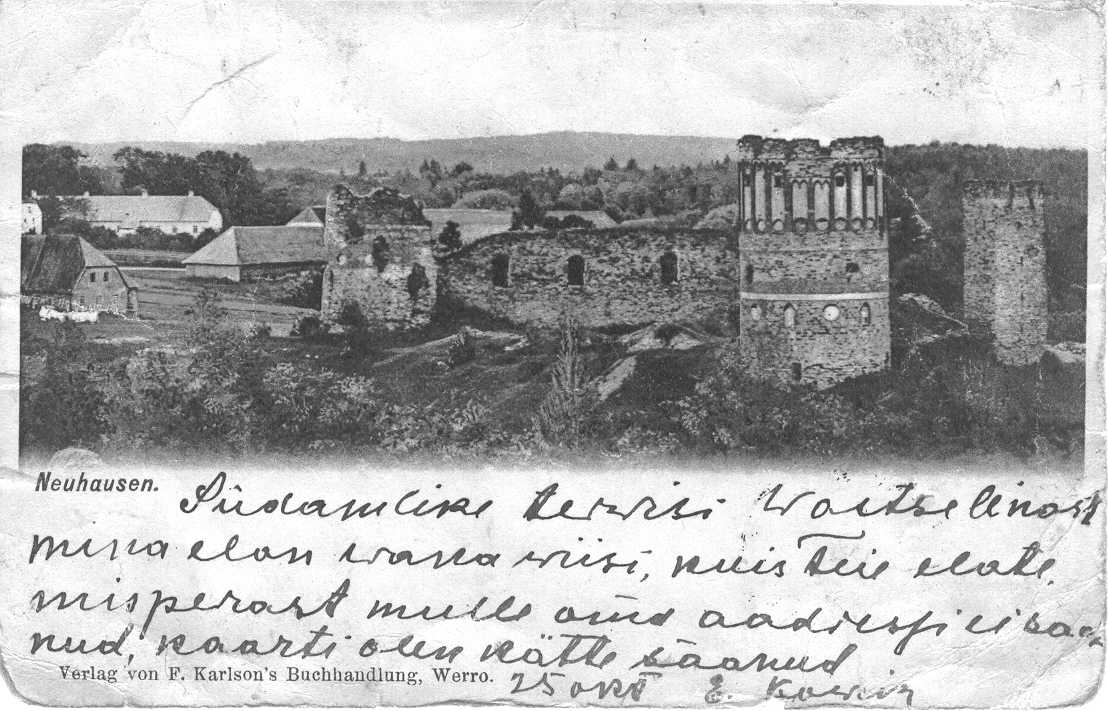 Neuhausen.
Südamlike terwisi Wastselinast
mina elan wana wiisi, kuis Teie elate,
misperast mulle oma aadressi ei saat-
nud, kaarti olen kätte saanud
Verlag von F. Karlson's Buchhandlung, Werro.
25 okt E.